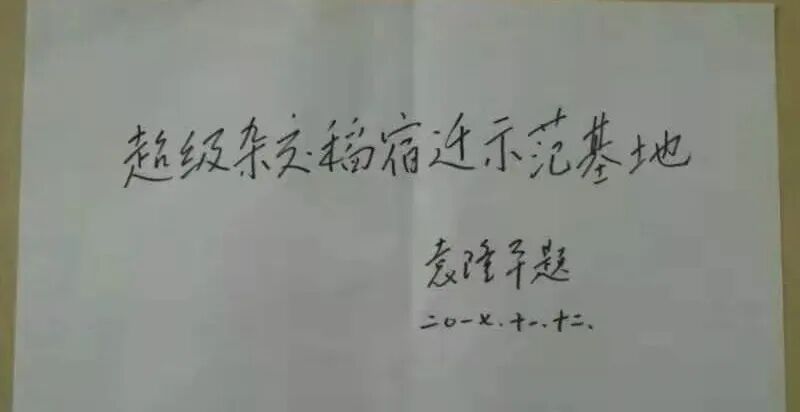 超级杂交稻宿迁示范基地
袁隆平题
二〇一七.十一.十二.